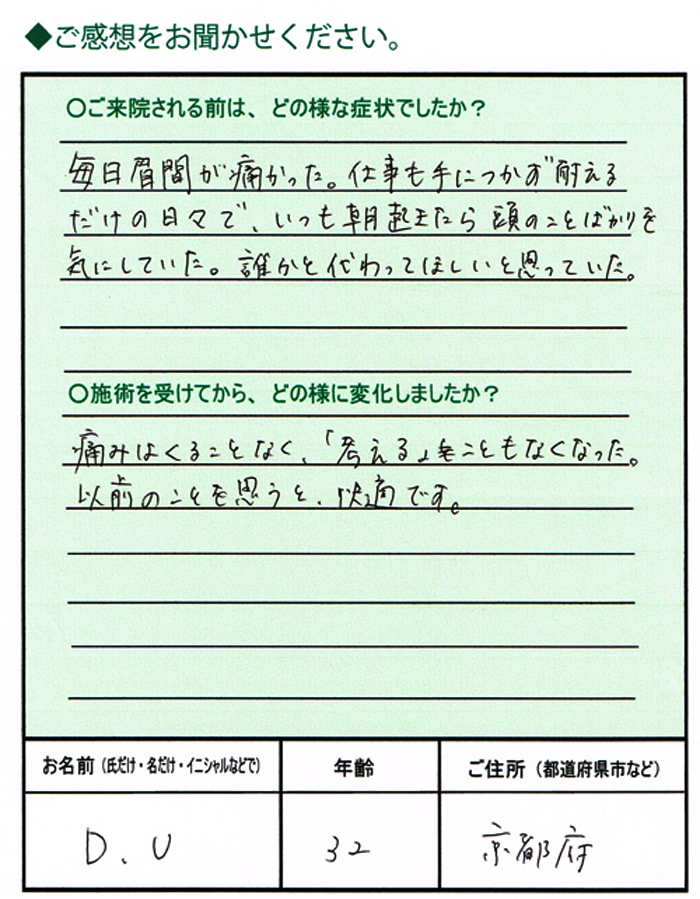 ◆ご感想をお聞かせください。
○ご来院される前は、どの様な症状でしたか？
毎日眉間が痛かった。仕事も手につかず耐える
だけの日々で、いつも朝起きたら頭のことばかりを
気にしていた。誰かと代わってほしいと思っていた。
○施術を受けてから、どの様に変化しましたか？
痛みはくることなく、「考える」をこともなくなった。
以前のことを思うと、快適です。
お名前（氏だけ・名だけ・イニシャルなどで） 年齢 ご住所（都道府県市など）
D.U 32 京都府